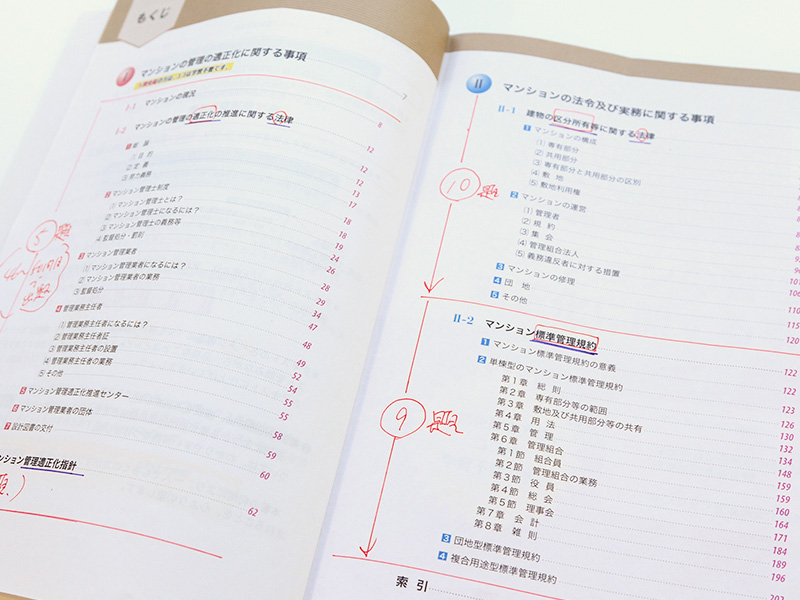 もくじ
I マンションの管理の適正化に関する事項
7
I-1 マンションの現況
8
I-2 マンションの管理の適正化の推進に関する法律
12
1 総 論
12
① 目 的
12
② 定 義
12
③ 努力義務
13
2 マンション管理士制度
17
(1) マンション管理士とは?
18
(2) マンション管理士になるには?
18
(3) マンション管理士の義務等
18
(4) 監督処分・罰則
19
3 マンション管理業者
24
(1) マンション管理業者になるには?
26
(2) マンション管理業者の業務
28
(3) 監督処分
29
4 管理業務主任者
34
(1) 管理業務主任者になるには?
47
(2) 管理業務主任者証
48
(3) 管理業務主任者の設置
49
(4) 管理業務主任者の業務
52
(5) その他
54
5 マンション管理適正化推進センター
55
6 マンション管理業者の団体
55
7 設計図書の交付
58
59
ンション管理適正化指針
60
62
5題
II マンションの法令及び実務に関する事項
II-1 建物の区分所有等に関する法律
1 マンションの構成
(1) 専有部分
(2) 共用部分
(3) 専有部分と共用部分の区別
(4) 敷 地
(5) 敷地利用権
2 マンションの運営
(1) 管理者
(2) 規 約
(3) 集 会
(4) 管理組合法人
(5) 義務違反者に対する措置
3 マンションの修理
4 団 地
5 その他
101
106
110
115
120
10題
II-2 マンション標準管理規約
1 マンション標準管理規約の意義
122
2 単棟型のマンション標準管理規約
122
第1章 総 則
123
第2章 専有部分等の範囲
126
第3章 敷地及び共用部分等の共有
130
第4章 用 法
132
第5章 管 理
134
第6章 管理組合
148
第1節 組合員
159
第2節 管理組合の業務
159
第3節 役 員
160
第4節 総 会
164
第5節 理事会
171
第7章 会 計
184
第8章 雑 則
189
3 団地型標準管理規約
196
4 複合用途型標準管理規約
202
9題
索 引